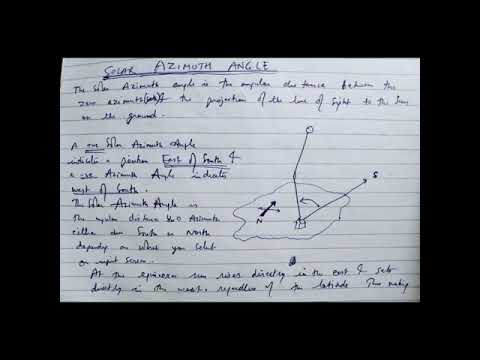 SOLAR AZIMUTH ANGLE
The Solar Azimuth angle is the angular distance between the
zero azimuth & the projection of the line of sight to the Sun
on the ground.
A +ve Solar Azimuth Angle
indicates a position East of South &
a -ve Azimuth Angle indicates
West of South.
The Solar Azimuth Angle is
the angular distance Azimuth
either due South or North
depending on what you select
on input screen.
S
N
At the equinoxes sun rises directly in the east & sets
directly in the west, regardless of the latitude. Thus making